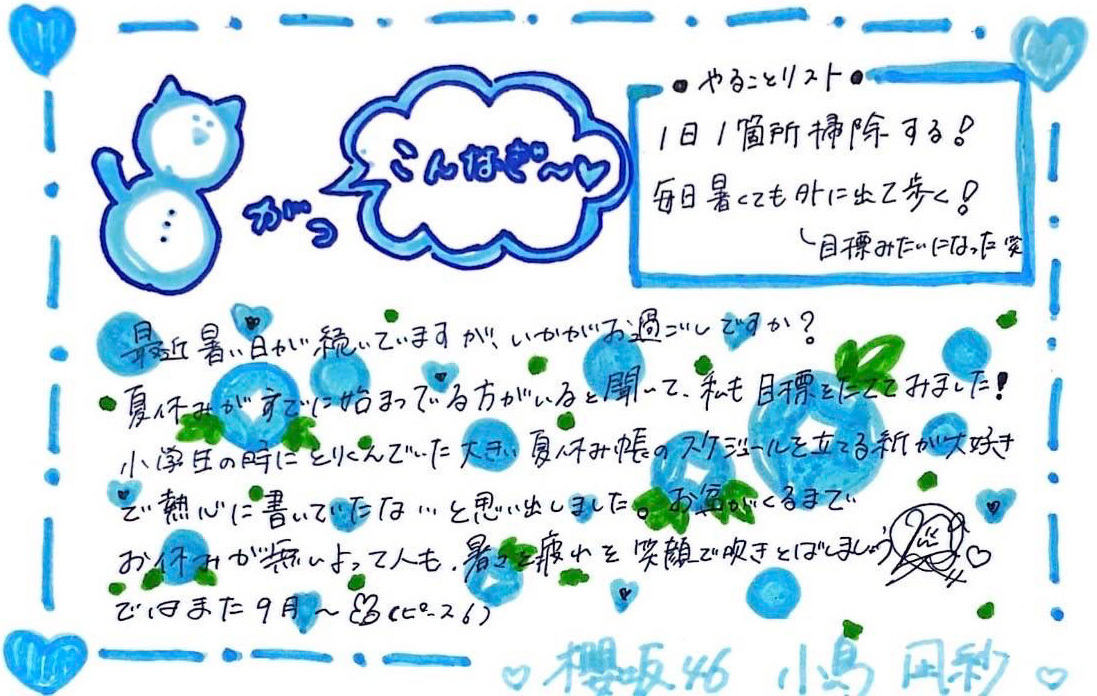 こんなぎ~♡
がっ
•やることリスト•
1日1箇所掃除する!
毎日暑くても外に出て歩く!
目標みたいになった笑
最近暑い日が続いていますが、いかがお過ごしですか?
夏休みがすでに始まってる方がいると聞いて、私も目標をたててみました!
小学生の時にとりくんでいた大きい夏休み帳のスケジュールを立てる紙が大好き
で熱心に書いていたな…と思い出しました。お盆がくるまで
お休みが無いよって人も、暑さと疲れを笑顔で吹きとばしましょう
ではまた9月~(ピース6)
♡櫻坂46 小島凪紗♡